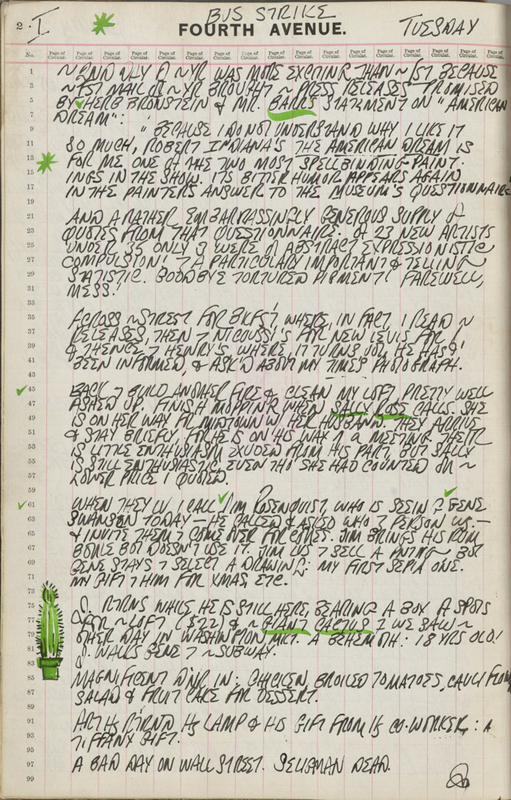 2 I BUS STRIKE TUESDAY
FOURTH AVENUE.
No. Page of Circular. Page of Circular. Page of Circular. Page of Circular. Page of Circular. Page of Circular. Page of Circular. Page of Circular. Page of Circular. Page of Circular. Page of Circular. Page of Circular. Page of Circular. Page of Circular. Page of Circular.
1 ~ 2ND DAY OF ~ YR WAS MORE EXCITING THAN ~ 1ST BECAUSE
3 ~ 1ST MAIL OF ~ YR BROUGHT ~ PRESS RELEASES PROMISED
5 BY HERB BRONSTEIN & MR. BARR'S STATEMENT ON "AMERICAN
7 DREAM":
9 "BECAUSE I DO NOT UNDERSTAND WHY I LIKE IT
11 SO MUCH, ROBERT INDIANA'S THE AMERICAN DREAM IS
13 FOR ME ONE OF THE TWO MOST SPELLBINDING PAINT-
15 INGS IN THE SHOW. ITS BITTER HUMOR APPEARS AGAIN
17 IN THE PAINTER'S ANSWER TO THE MUSEUM'S QUESTIONNAIRE
19
21 AND A RATHER EMBARRASSINGLY GENEROUS SUPPLY OF
23 QUOTES FROM THAT QUESTIONNAIRE. OF 23 NEW ARTISTS
25 UNDER 35 ONLY 3 WERE OF ABSTRACT EXPRESSIONISTIC
27 COMPULSION! A PARTICULARLY IMPORTANT & TELLING
29 STATISTIC. GOODBYE TORTURED PIGMENT! FAREWELL,
31 MESS!
33
35 ACROSS ~ STREET FOR BKFST WHERE, IN FACT, I READ ~
37 RELEASES, THEN FOR NEW LEVIS FOR
39 & THENCE HENRY'S WHERE, IT TURNS OUT, HE HAS
41 BEEN INFORMED, & ASKD ABOUT MY TIMES PHOTOGRAPH.
43
45 BACK BUILD ANOTHER FIRE & CLEAN MY LOFT, PRETTY WELL
47 ASHED UP. FINISH MOPPING WHEN SALLY CALLS. SHE
49 IS ON HER WAY MIDTOWN W HER HUSBAND. THEY ARRIVE
51 & STAY BRIEFLY, FOR HE IS ON HIS WAY A MEETING. THERE
53 IS LITTLE ENTHUSIASM EXUDED FROM HIS PART, BUT SALLY
55 IS STILL ENTHUSIASTIC, EVEN THO SHE HAD COUNTED ON ~
57 LOWER PRICE I QUOTED.
59
61 WHEN THEY LV I CALL JIM ROSENQUIST, WHO IS SEEIN GENE
63 SWANSON TODAY — HE CALLED & ASKED WHO PERSON WS —
65 & INVITE THEM COME OVER FOR COFFEE. JIM BRINGS HIS RUM
67 BOTTLE BUT DOESN'T USE IT. JIM LVS SELL A PNTNG — BUT
69 GENE STAYS SELECT A DRAWING: MY FIRST SEPIA ONE.
71 MY GIFT THIM FOR XMAS, ETC.
73
75 J. RTRNS WHILE HE IS STILL HERE, BEARING A BOX OF SPOTS
77 FOR ~ LOFT ($22) & ~ GIANT CACTUS WE SAW ~
79 OTHER DAY IN WASHINGTON MKT. A BEHEMOTH: 18 YRS OLD!
81 J. WALKS GENE ~ SUBWAY.
83
85 MAGNIFICENT DNR IN: CHICKEN, BROILED TOMATOES, CAULIFLOWER
87 SALAD & FRUIT CAKE FOR DESSERT.
89
91 LAMP & HIS GIFT FROM CO-WORKER: A
93 TIFFANY GIFT.
95
97 A BAD DAY ON WALL STREET. SELIGMAN DEAD.
99